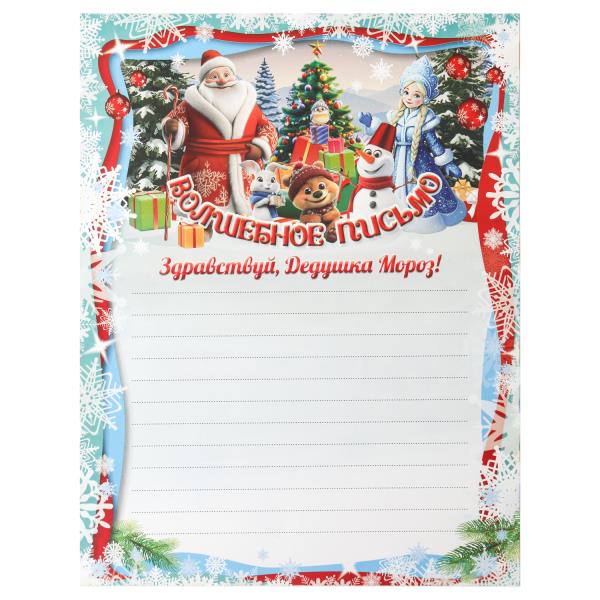 ВОЛШЕБНОЕ ПИСЬМО
Здравствуй, Дедушка Мороз!